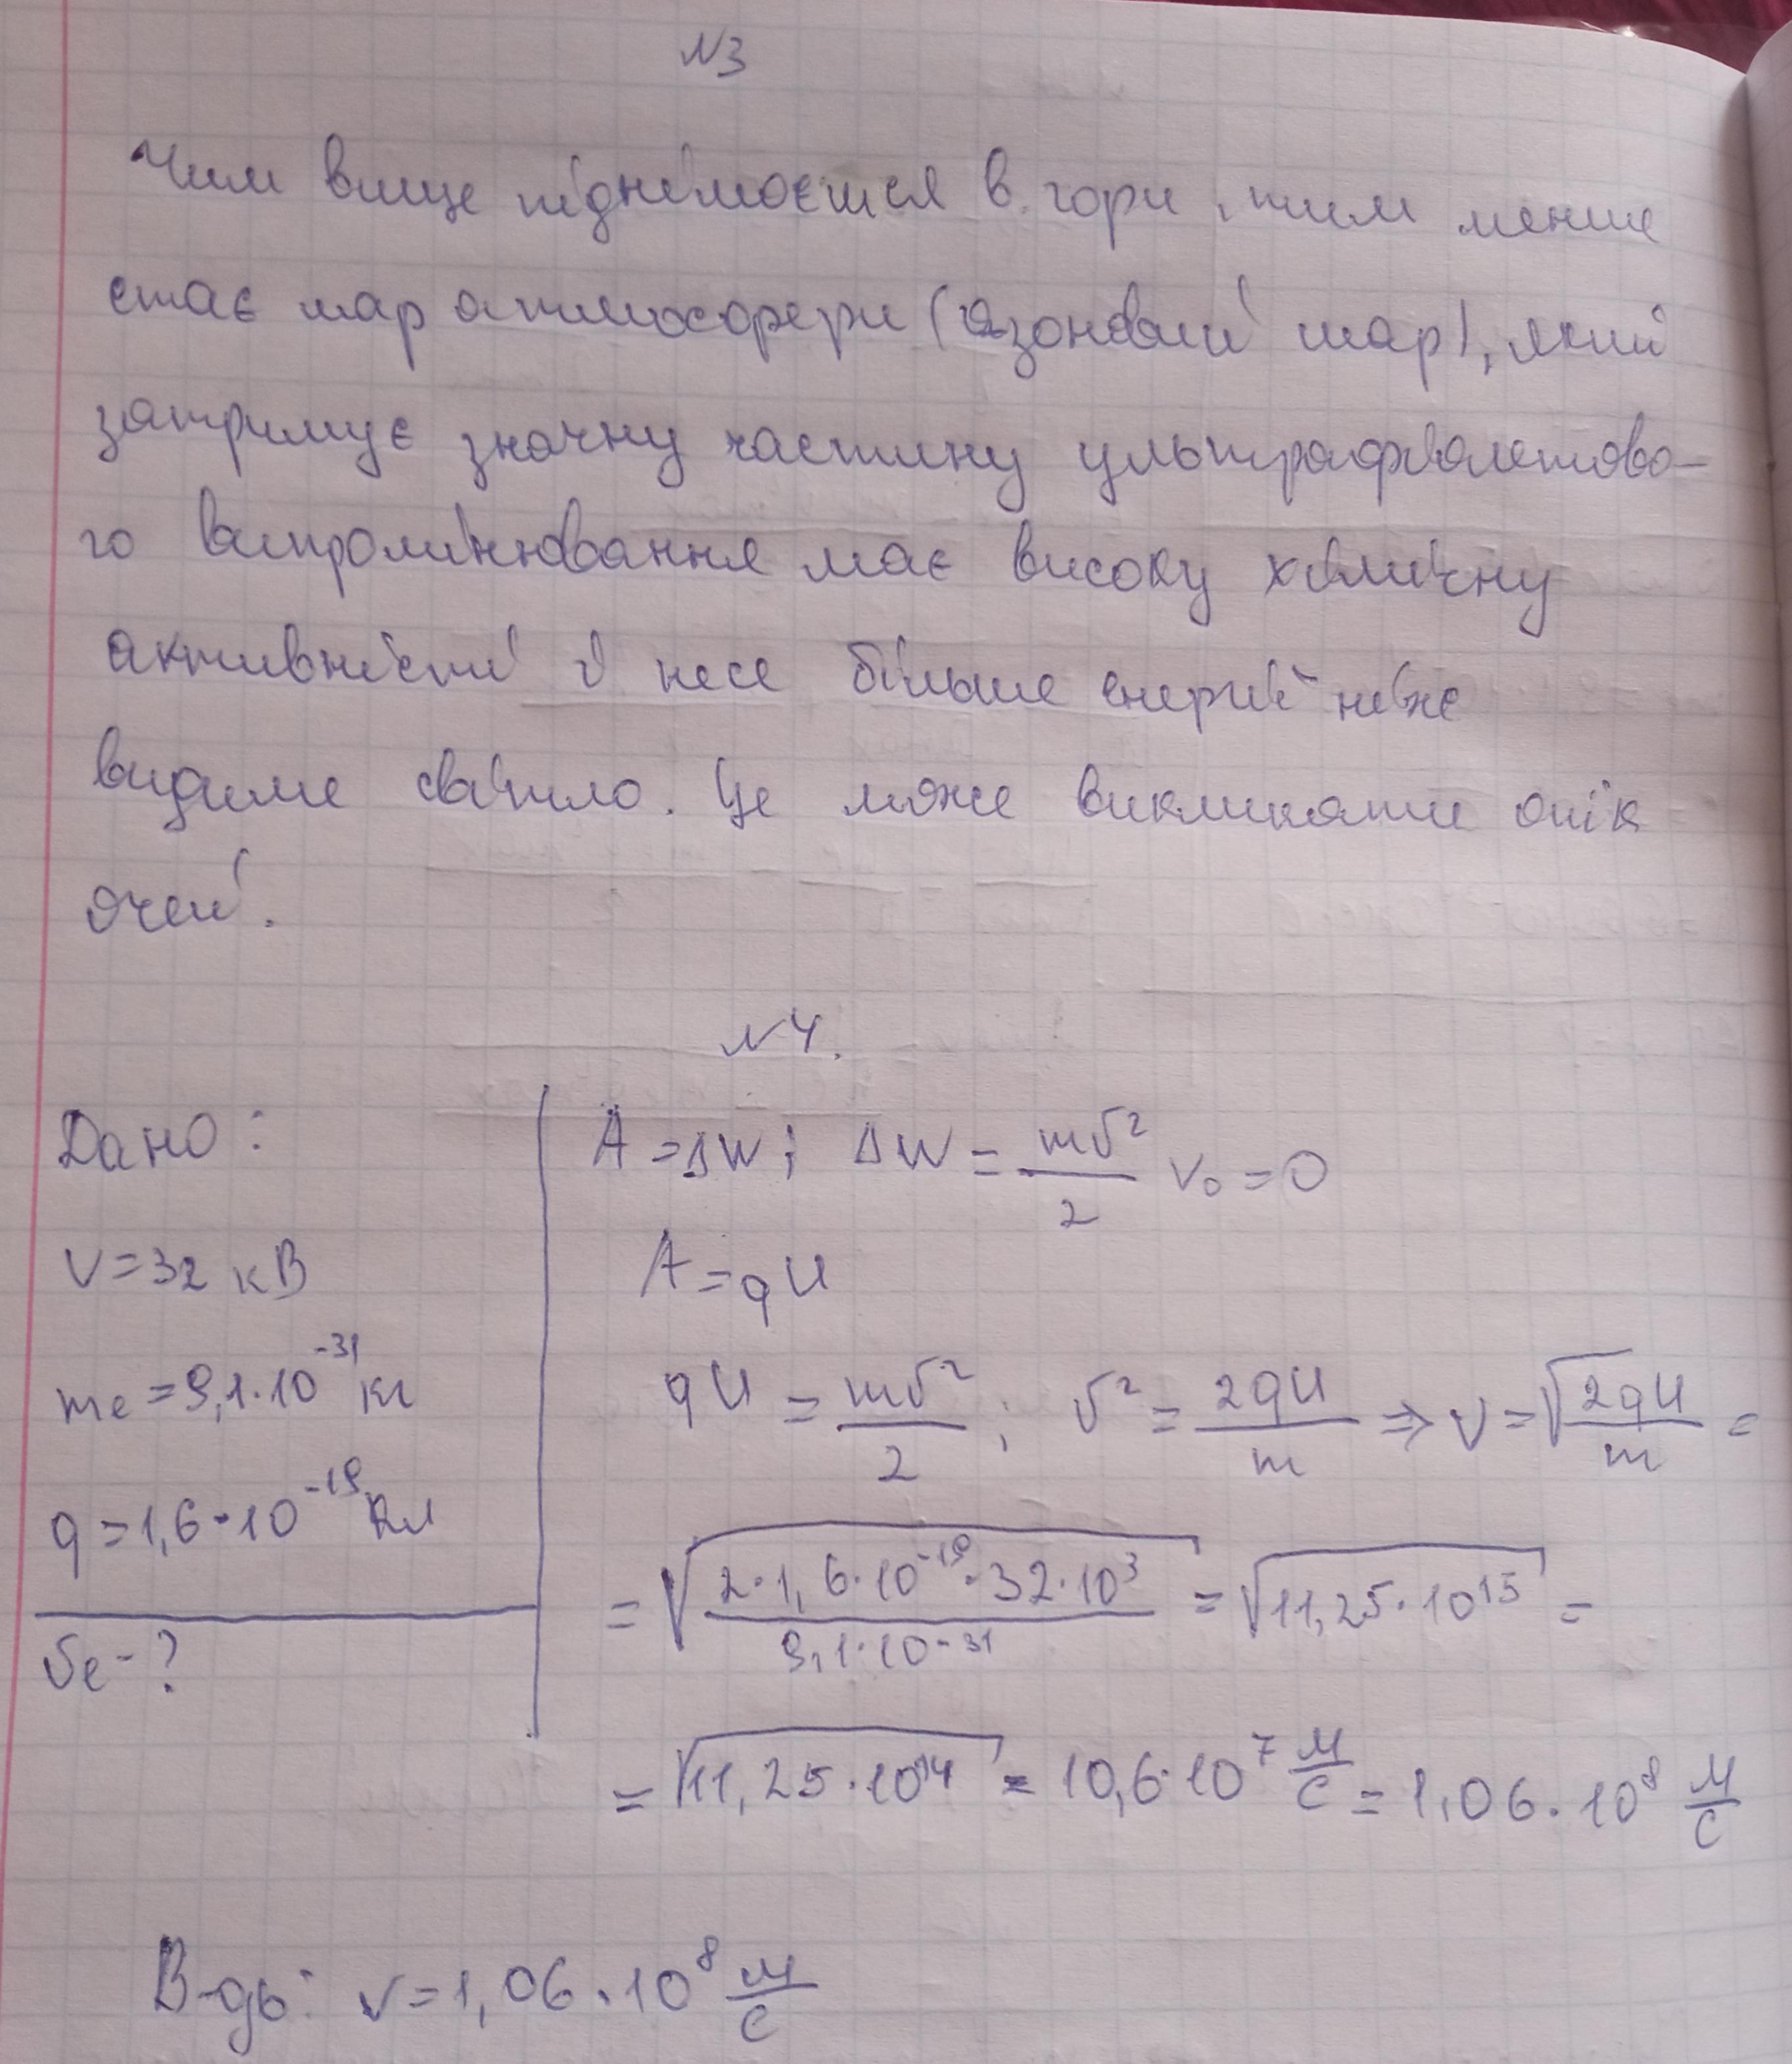 №3
Чим вище піднімається в гори, тим менше
стає шар атмосфери (Озоновий шар), який
затримує значну частину ультрафіолетово-
го випромінювання має високу хімічну
активність і несе більше енергії ніже
видиме світло. Це може викликати опік
очей.
№4.
Дано:
V=32 кВ
me=9,1·10⁻³¹ кг
q=1,6·10⁻¹⁹ Кл
υe-?
A=ΔW; ΔW = mυ²/2 V₀=0
A=qU
qU = mυ²/2; υ² = 2qU/m => V=√(2qU/m) =
= √(2·1,6·10⁻¹⁹·32·10³/9,1·10⁻³¹) = √(11,25·10¹⁵) =
= √(11,25·10¹⁴) = 10,6·10⁷ м/с = 1,06·10⁸ м/с
В-дь: v=1,06·10⁸ м/с